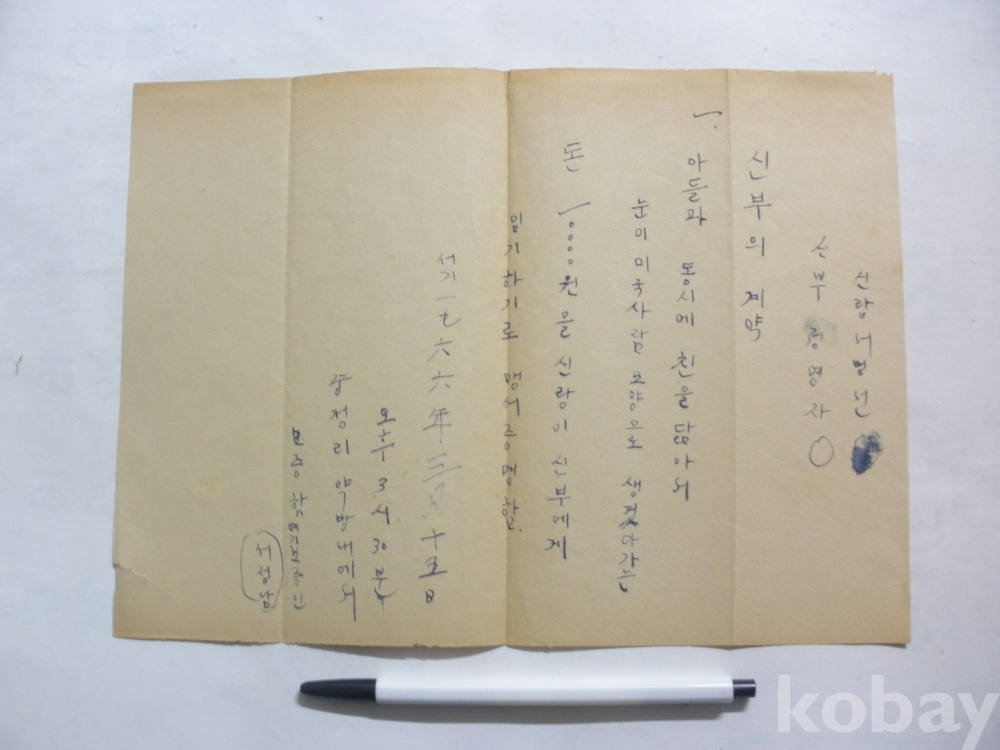 신랑 서명선
신부 령명자
신부의 계약
一. 아들과 동시에 친을 닮아서
눈이 미국사람 모양으로 생겨
돈 一0000원을 신랑이 신부에게
임기하기로 맹서증명함.
서기 一九六六年 三月 十五日
오후 3시 30분
약방내에서
보증
kobay